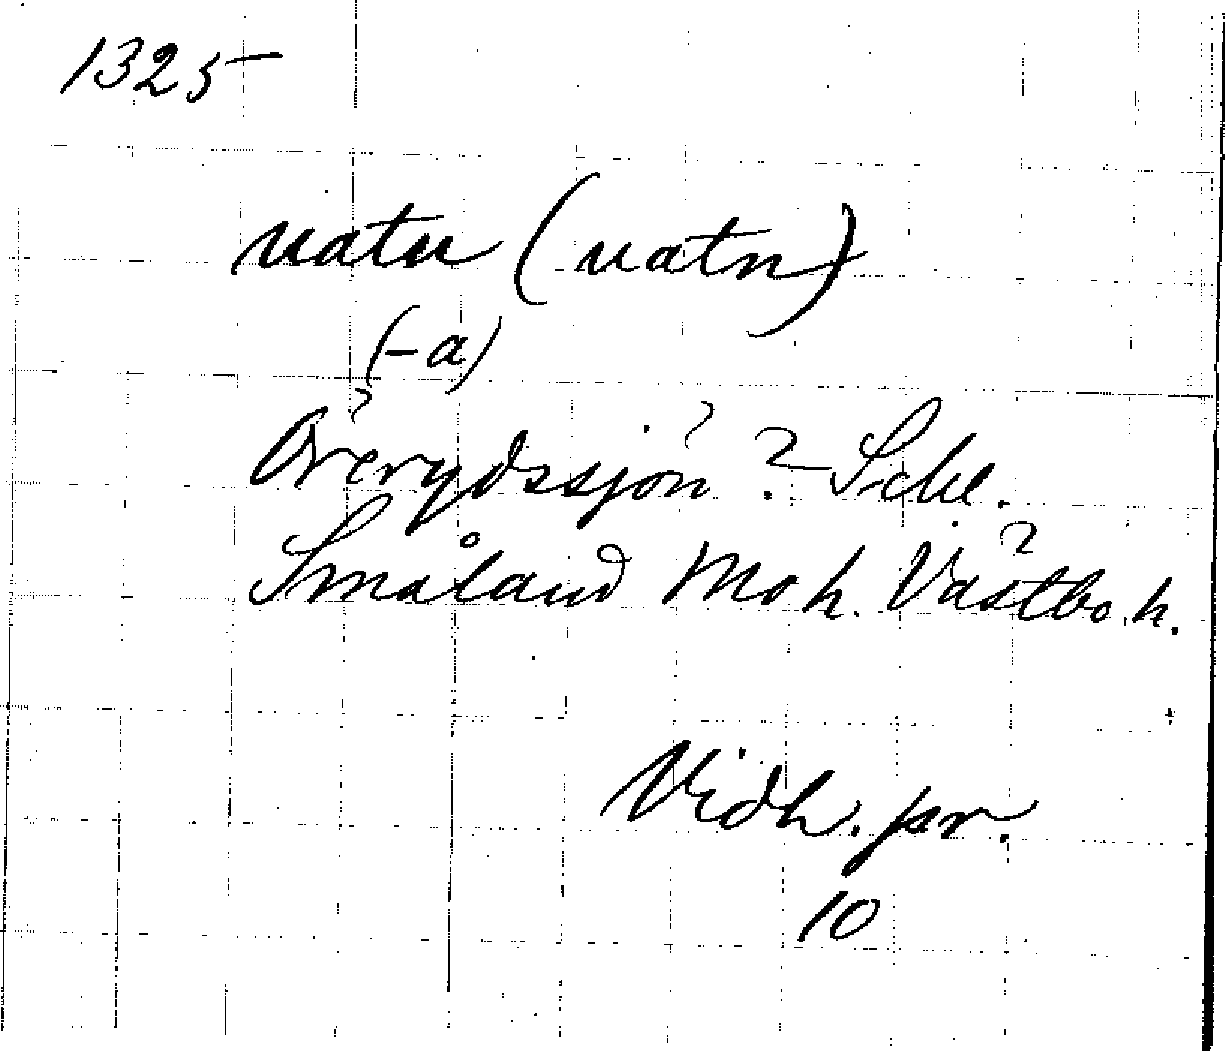 1325
vatu (vatn)
(-a)
Örerydssjön ? Schl.
Småland Mo h. Västbo h. ?
Vidh. pr.
10